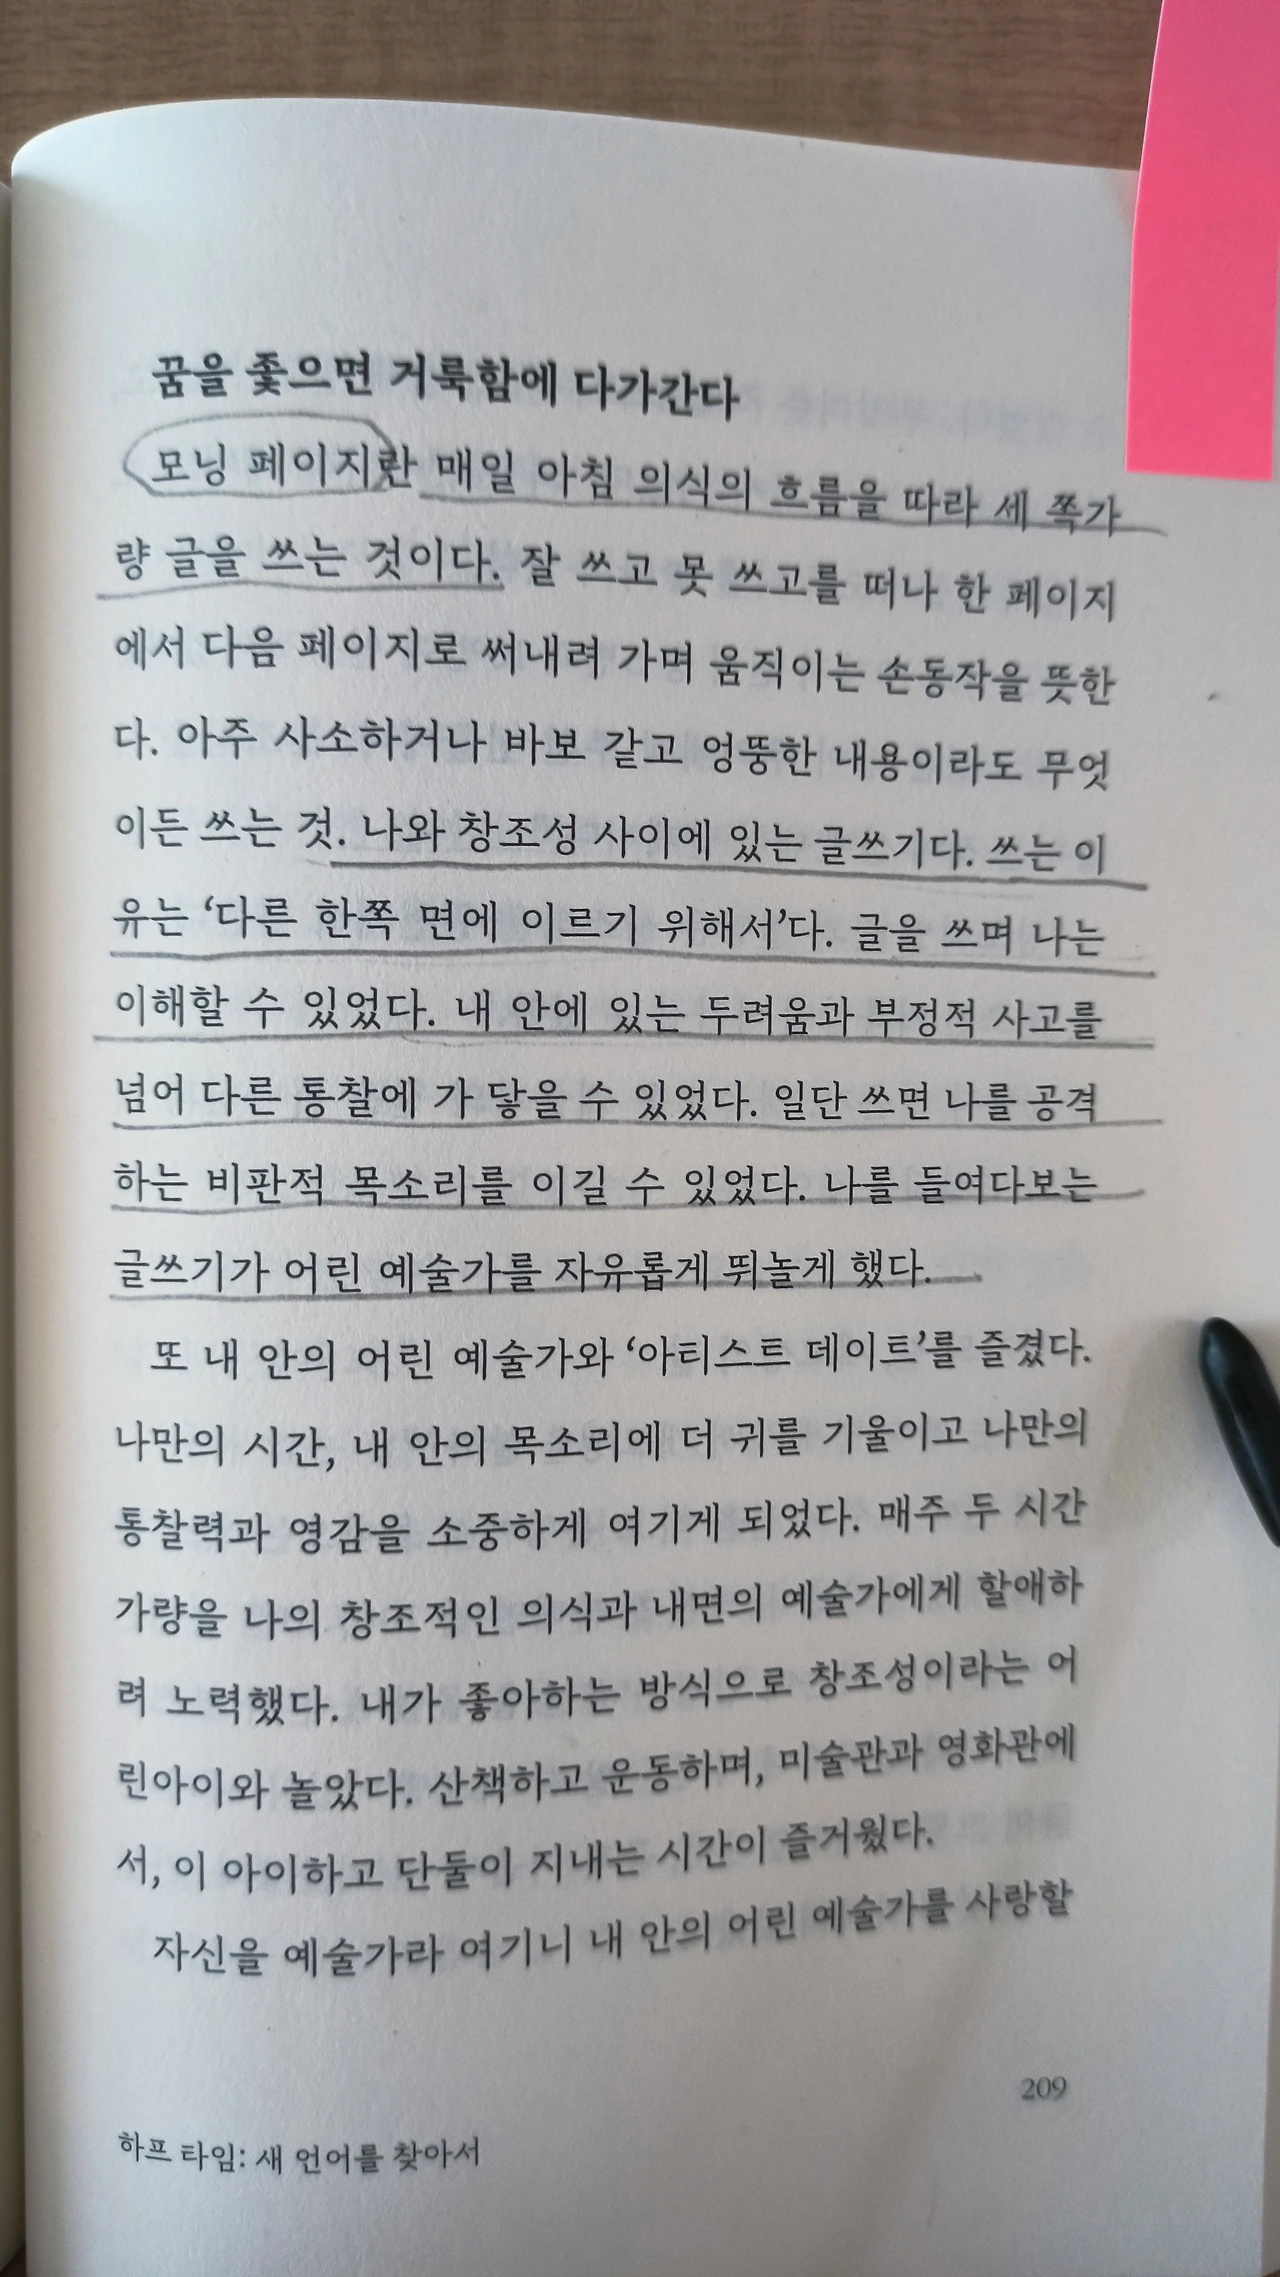 꿈을 좇으면 거룩함에 다가간다
모닝 페이지란 매일 아침 의식의 흐름을 따라 세 쪽가
량 글을 쓰는 것이다. 잘 쓰고 못 쓰고를 떠나 한 페이지
에서 다음 페이지로 써내려 가며 움직이는 손동작을 뜻한
다. 아주 사소하거나 바보 같고 엉뚱한 내용이라도 무엇
이든 쓰는 것. 나와 창조성 사이에 있는 글쓰기다. 쓰는 이
유는 ‘다른 한쪽 면에 이르기 위해서’다. 글을 쓰며 나는
이해할 수 있었다. 내 안에 있는 두려움과 부정적 사고를
넘어 다른 통찰에 가 닿을 수 있었다. 일단 쓰면 나를 공격
하는 비판적 목소리를 이길 수 있었다. 나를 들여다보는
글쓰기가 어린 예술가를 자유롭게 뛰놀게 했다.
또 내 안의 어린 예술가와 ‘아티스트 데이트’를 즐겼다.
나만의 시간, 내 안의 목소리에 더 귀를 기울이고 나만의
통찰력과 영감을 소중하게 여기게 되었다. 매주 두 시간
가량을 나의 창조적인 의식과 내면의 예술가에게 할애하
려 노력했다. 내가 좋아하는 방식으로 창조성이라는 어
린아이와 놀았다. 산책하고 운동하며, 미술관과 영화관에
서, 이 아이하고 단둘이 지내는 시간이 즐거웠다.
자신을 예술가라 여기니 내 안의 어린 예술가를 사랑할
209
하프 타임: 새 언어를 찾아서